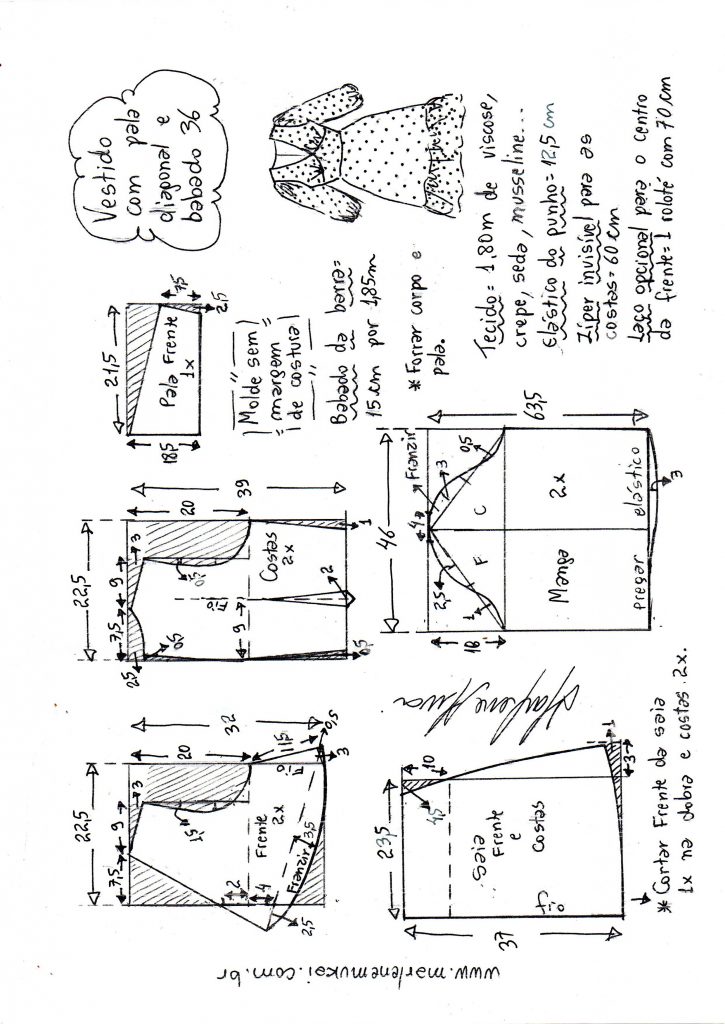 Vestido
com pala
diagonal e
babado 36
21,5
18,5
7,5
2,5
Pala Frente
1x
Molde sem
margem
de costura
Babado da barra=
15cm por 1,85m
* Forrar corpo e
pala.
Tecido = 1,80m de viscose,
crepe, seda, musseline...
Elástico do punho=12,5cm
Zíper invisível para as
costas=60cm
Laço opcional para o centro
da frente=1 roloté com 70cm
22,5
7,5
9
3
20
39
2,5
0,5
0,5
Fio
9
Costas
2x
2
1
0,5
22,5
7,5
9
3
20
32
1,5
Frente
2x
2
4
2,5
Franzir
3,5
Fio
15
0,5
3
46
4
Franzir
2,5
1
3
0,5
18
F
C
63,5
Manga
2x
pregar elástico
3
23,5
10
4,5
Saia
Frente
e
Costas
fio
37
1
3
* Cortar Frente da saia
1x na dobra e costas 2x.
www.marlenemukai.com.br